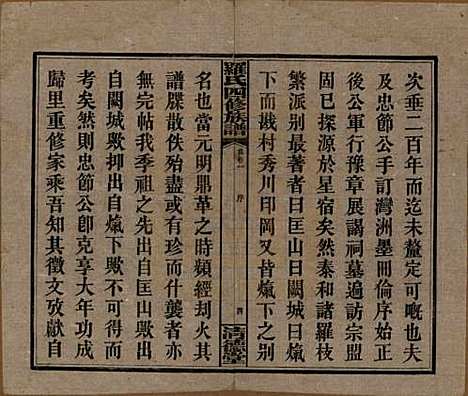 次垂二百年而迄未釐定可嘅也夫
及忠節公手訂灣洲墨冊倫序始正
後公軍行豫章展謁祠墓遍訪宗盟
固已探源於星宿矣然秦和諸羅枝
繁派别最著者曰匡山曰闕城曰爊
下而戡村秀川印岡又皆爊下之别
羅氏四修族譜
卷一
序
四
名也當元明鼎革之時頻經刧火其
譜牒散佚殆盡或有珍而什襲者亦
無完帖我季祖之先出自匡山歟出
自闕城歟抑出自爊下歟不可得而
考矣然則忠節公卽克享大年功成
歸里重修家乘吾知其徵文攷獻自